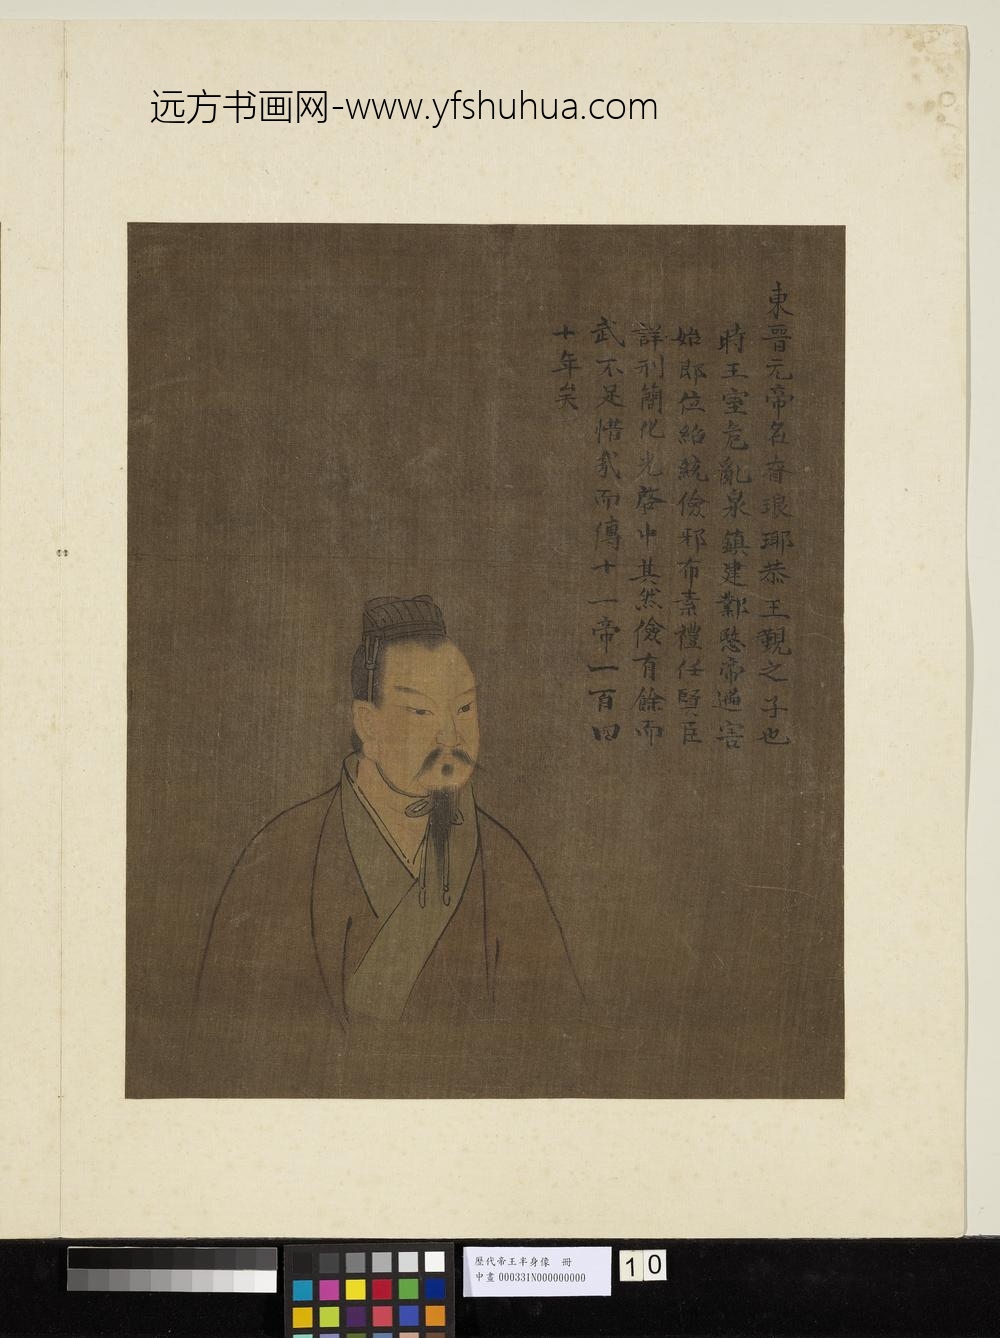 远方书画网-www.yfshuhua.com
東晉元帝名睿琅琊恭王覲之子也
時王室危亂泉鎮建鄴愍帝遇害
始即位紹統儉邪布素禮任賢臣
詳刑簡化光啓中其然儉有餘而
武不足惜哉而傳十一帝一百四
十年矣
歷代帝王半身像 冊
中畫000331N000000000
10